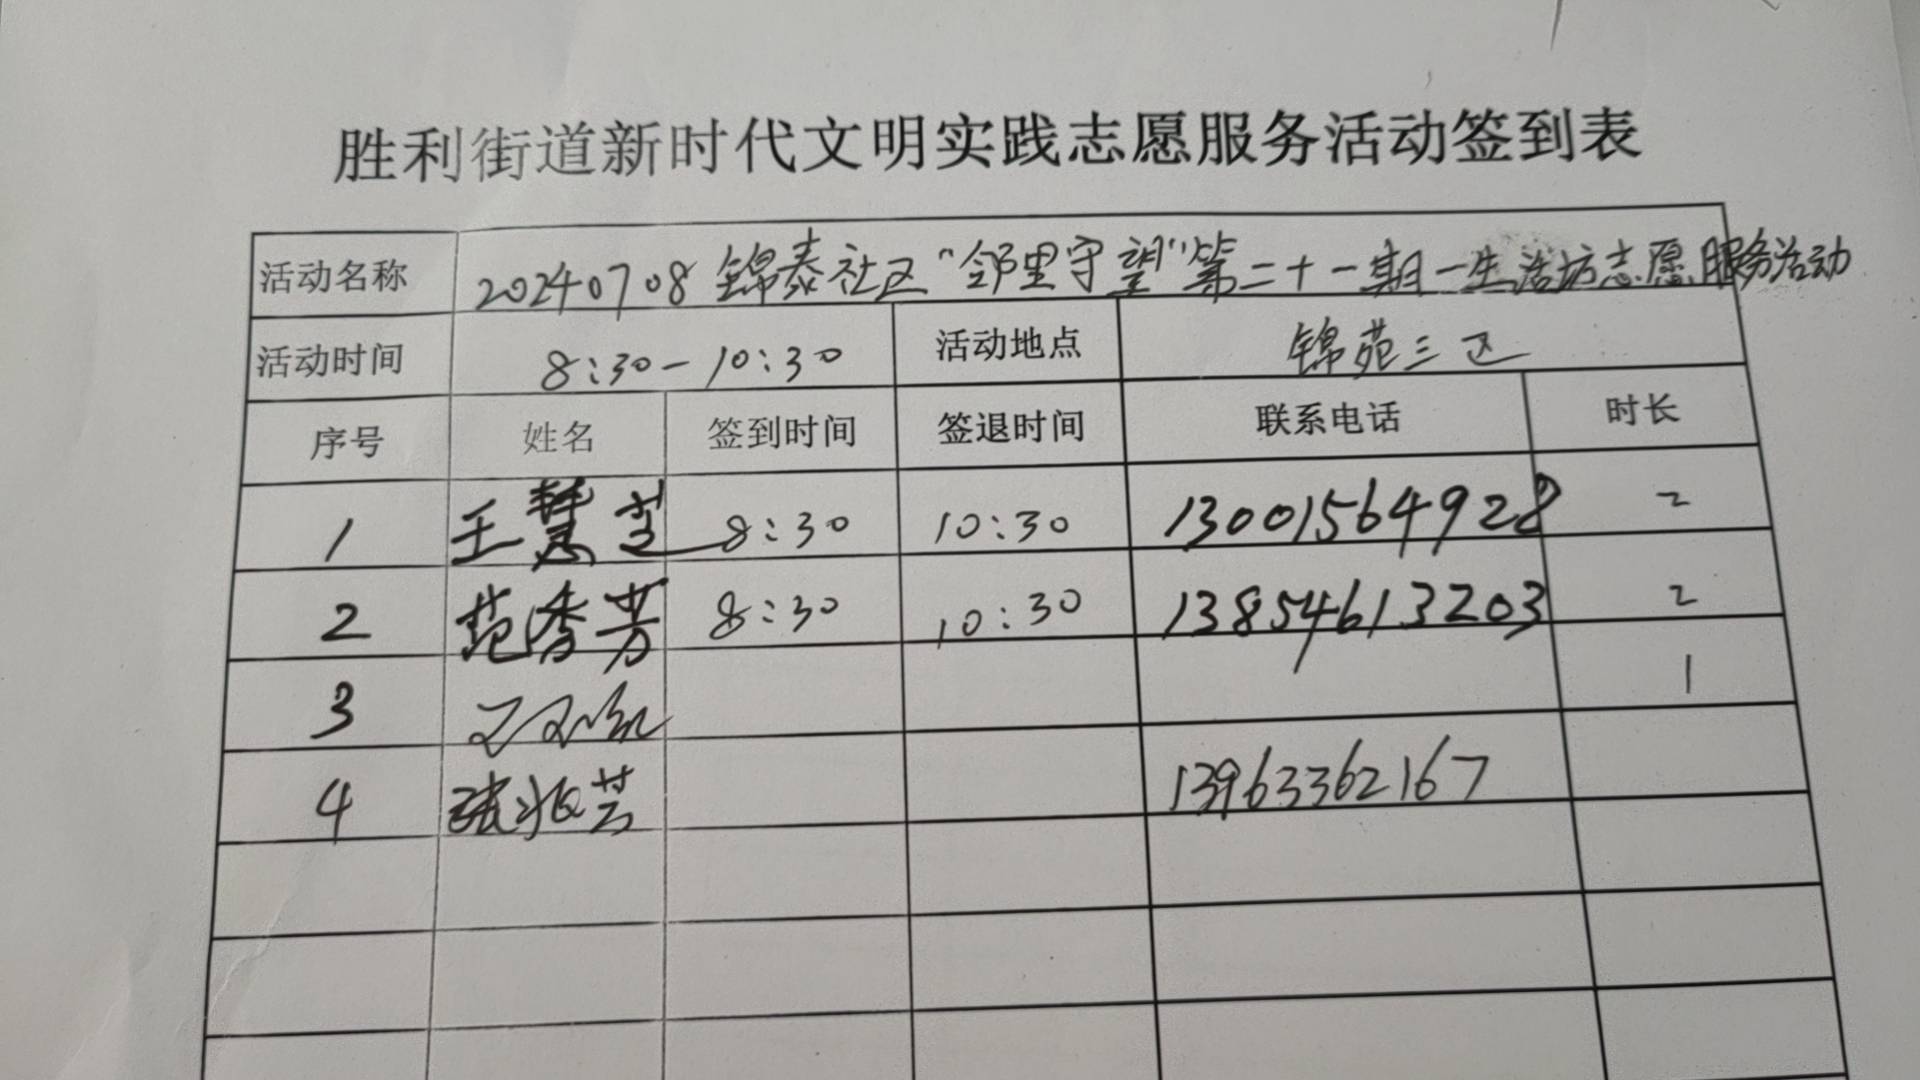 胜利街道新时代文明实践志愿服务活动签到表
活动名称 20240708 锦泰社区“邻里守望”第二十一期一生活坊志愿服务活动
活动时间 8:30-10:30 活动地点 锦苑三区
序号 姓名 签到时间 签退时间 联系电话 时长
1 王慧芝 8:30 10:30 13001564928 2
2 范秀芳 8:30 10:30 13854613203 2
3 1
4 张兆芸 13963362167